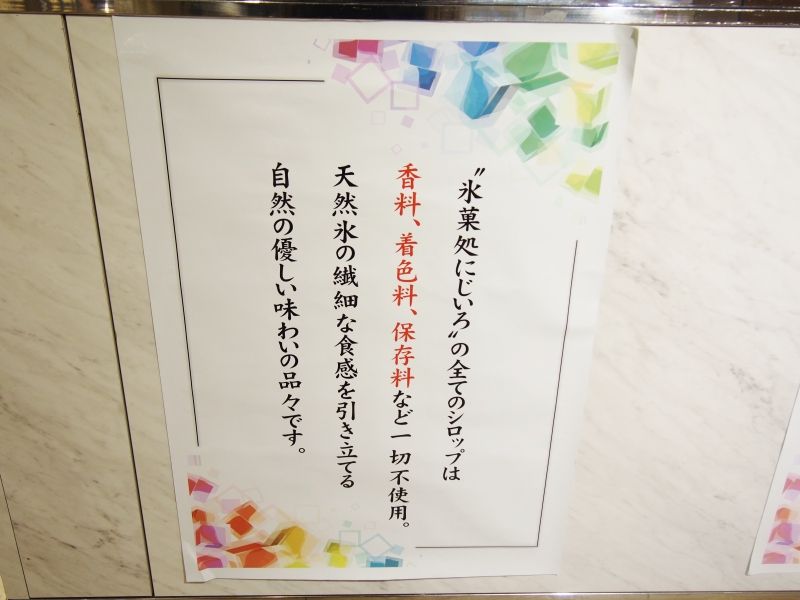 〝氷菓処にじいろ〟の全てのシロップは
香料、着色料、保存料など一切不使用。
天然氷の繊細な食感を引き立てる
自然の優しい味わいの品々です。